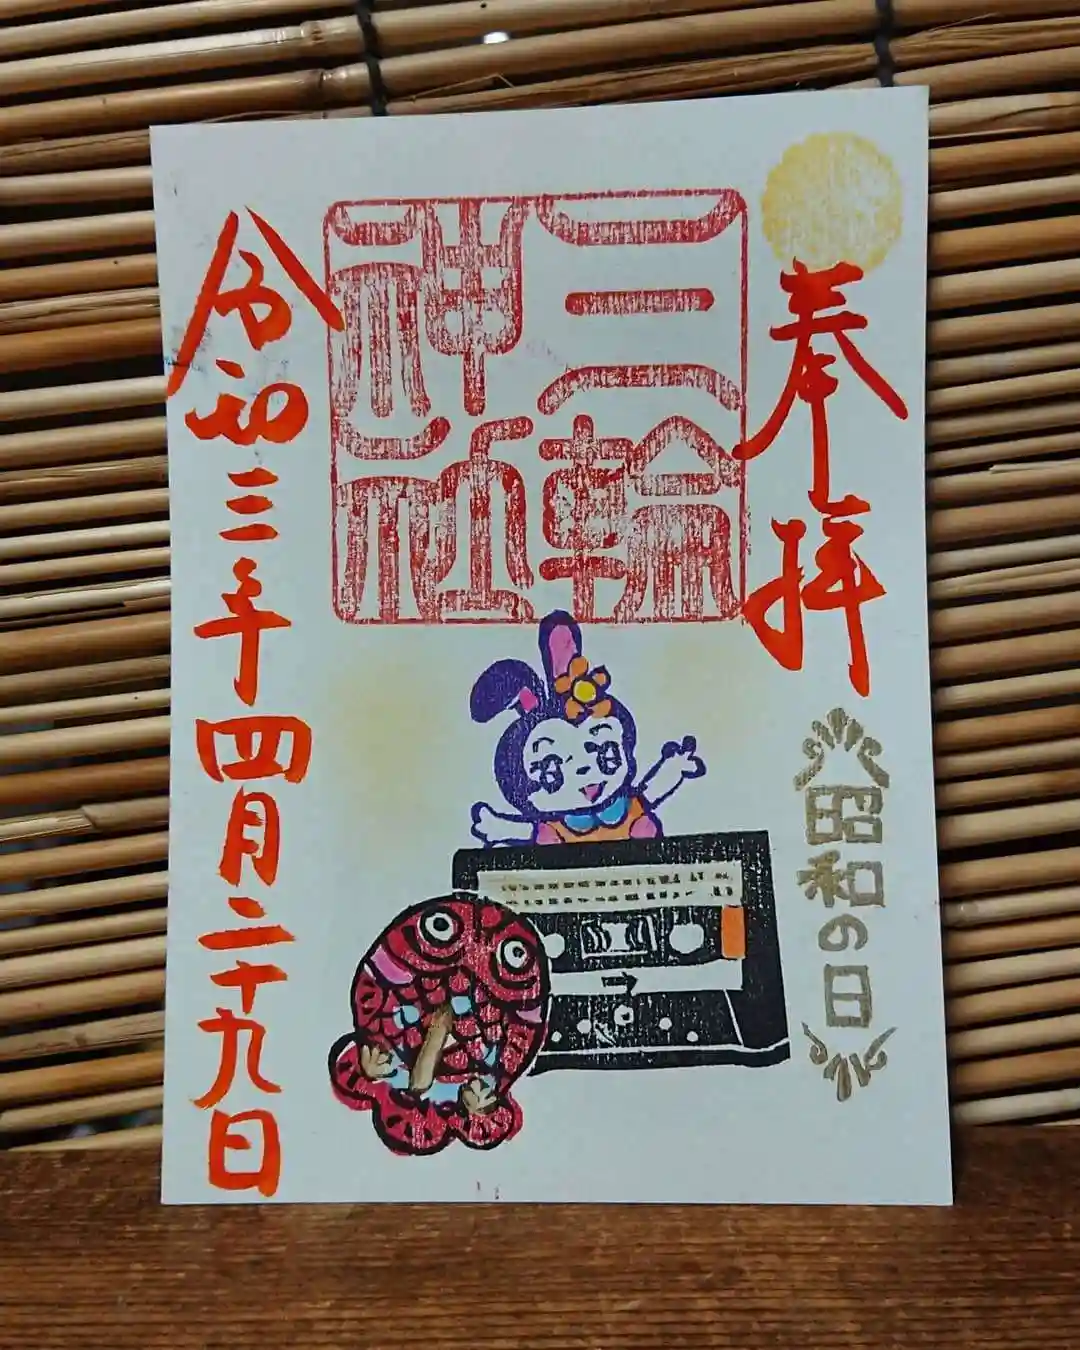 奉拝
昭和の日
三輪
神社
令和三年四月二十九日